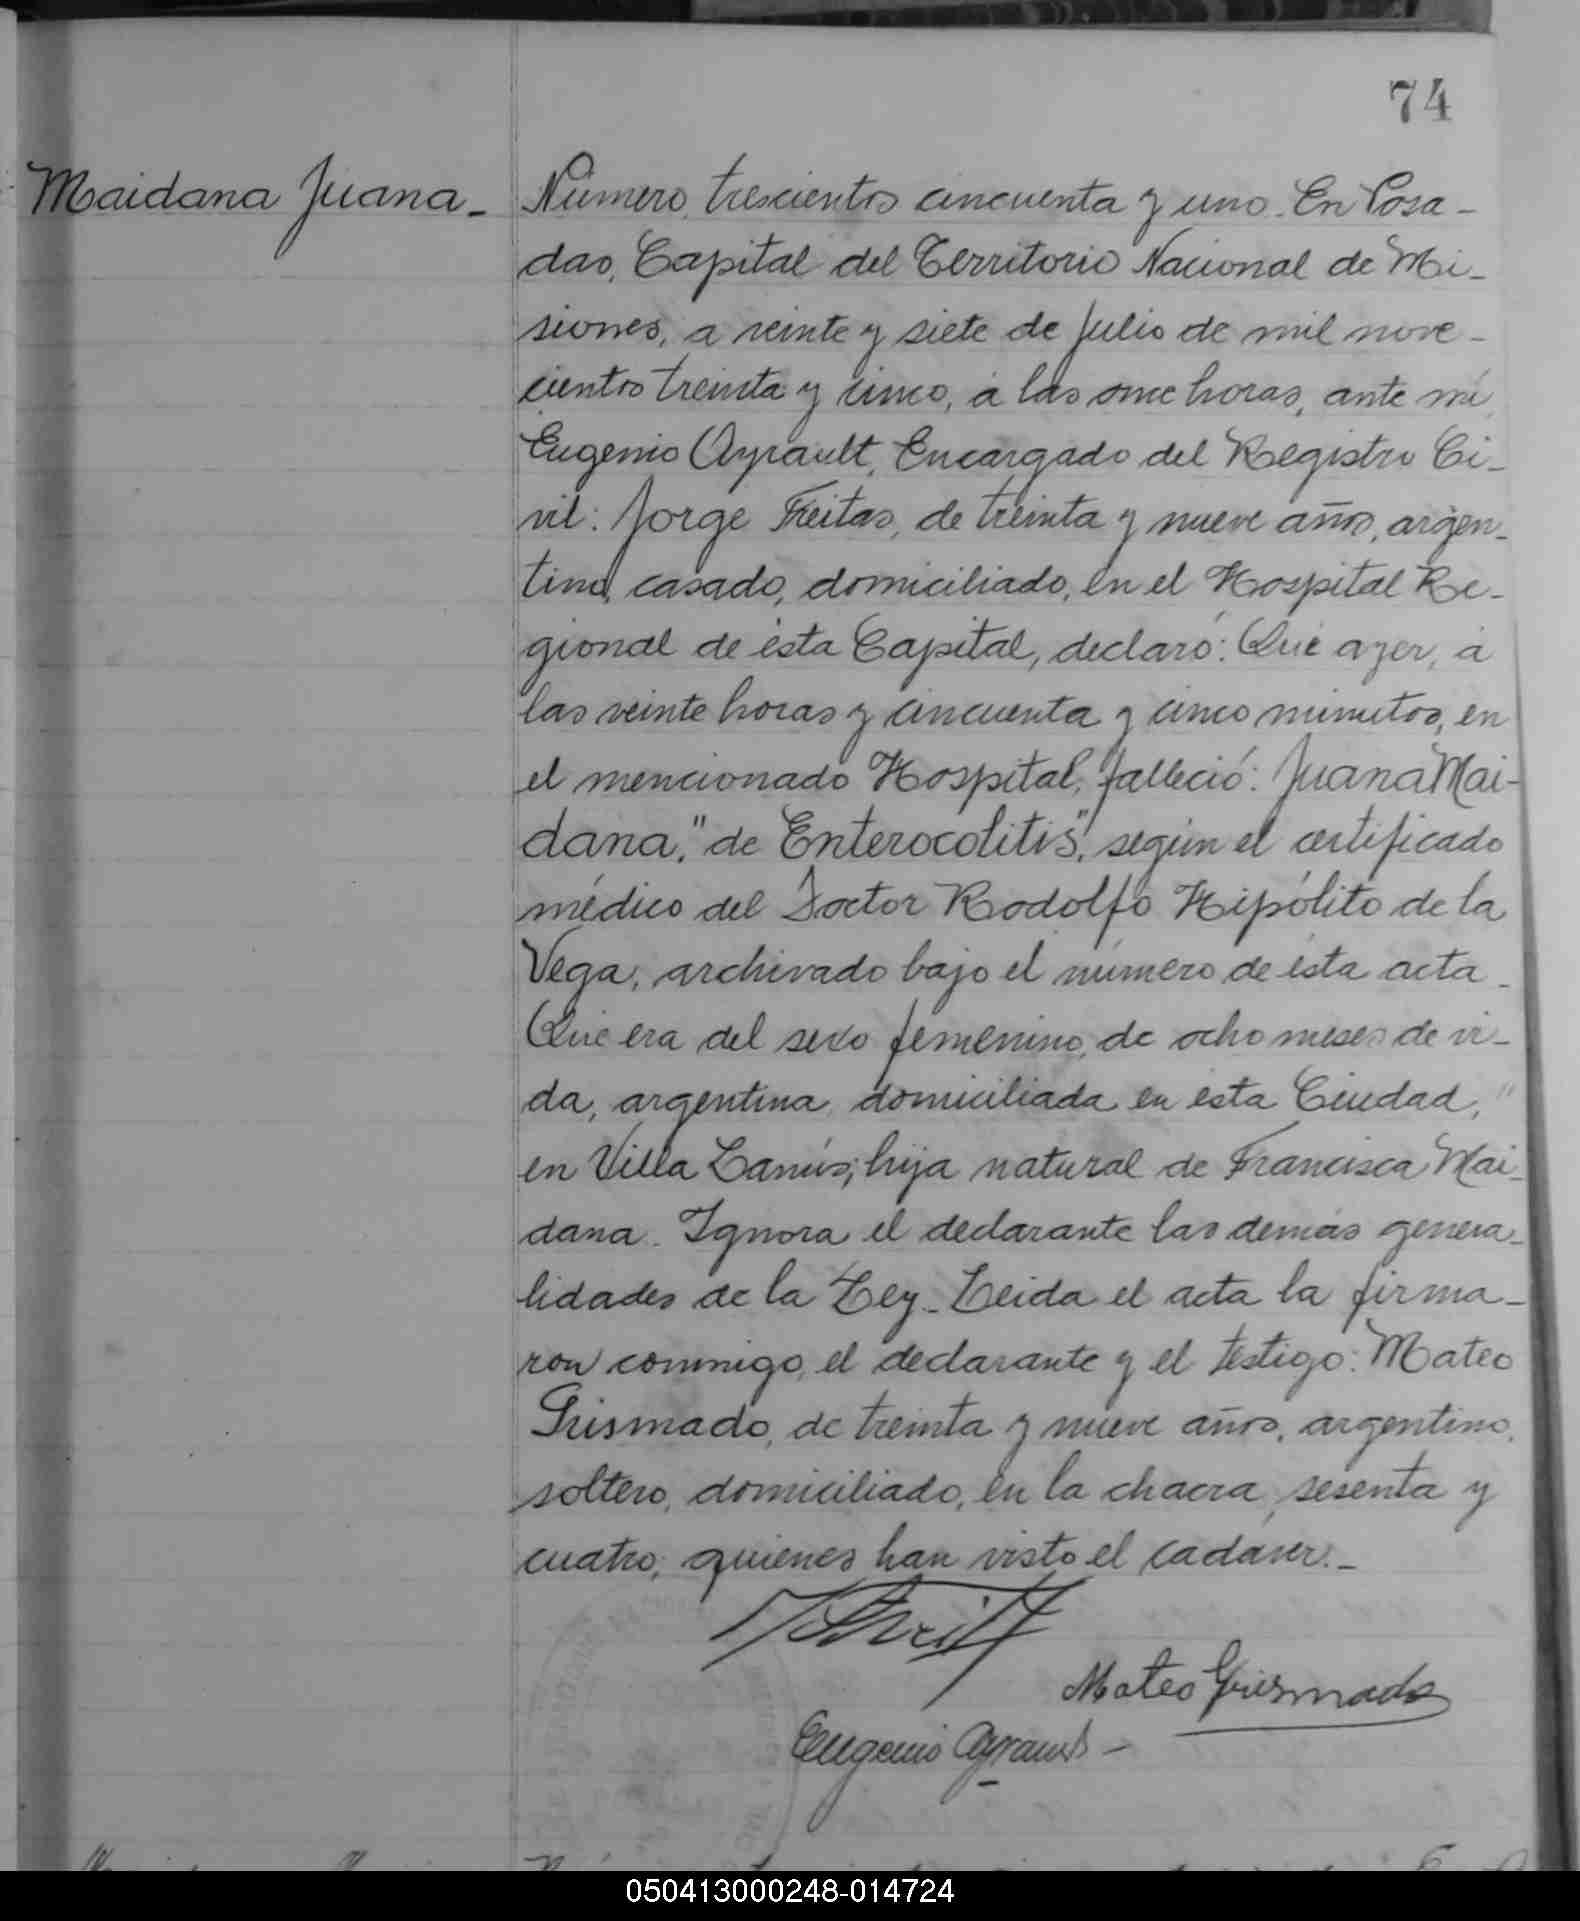 74
Maidana Juana_
Número trescientos cincuenta y uno. En Posa-
das, Capital del Territorio Nacional de Mi-
siones, a veinte y siete de Julio de mil nove-
cientos treinta y cinco, á las once horas, ante mí,
Eugenio Ayrault, Encargado del Registro Ci-
vil: Jorge Freitas, de treinta y nueve años, argen-
tino, casado, domiciliado, en el Hospital Re-
gional de ésta Capital, declaró: Qué ayer, á
las veinte horas y cincuenta y cinco minutos, en
el mencionado Hospital, falleció: Juana Mai-
dana, "de Enterocolitis", según el certificado
médico del Doctor Rodolfo Hipólito de la
Vega, archivado bajo el número de ésta acta_
Qué era del sexo femenino, de ocho meses de vi-
da, argentina, domiciliada en ésta Ciudad, "
en Villa Lanús; hija natural de Francisca Mai-
dana. Ignora el declarante las demás genera-
lidades de la Ley_ Leida el acta la firma-
ron conmigo, el declarante y el testigo: Mateo
Grismado, de treinta y nueve años, argentino,
soltero, domiciliado, en la chacra, sesenta y
cuatro; quienes han visto el cadáver._
Mateo Grismado
Eugenio Ayrault -
050413000248-014724